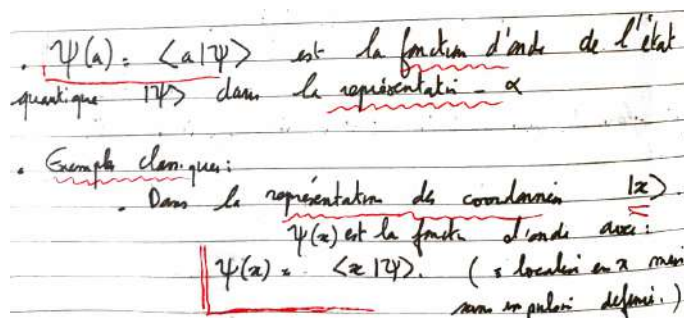 . Ψ(a) = <a|Ψ> est la fonction d'onde de l'état
quantique |Ψ> dans la représentation - α
. Exemples classiques:
. Dans la représentation des coordonnées |x>
Ψ(x) est la fonction d'onde avec:
Ψ(x) = <x|Ψ>. ( localisé en x mais
sans impulsion définie.)